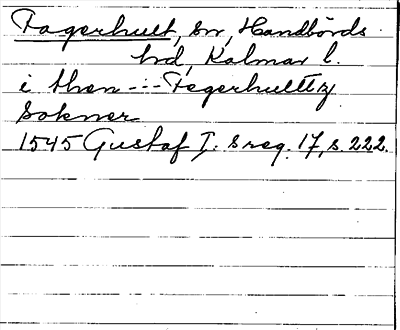 Fagerhult, sn, Handbörds
hd, Kalmar l.
i then --- Fegerhultz
Sokner
1545 Gustaf I:s reg. 17, s. 222.